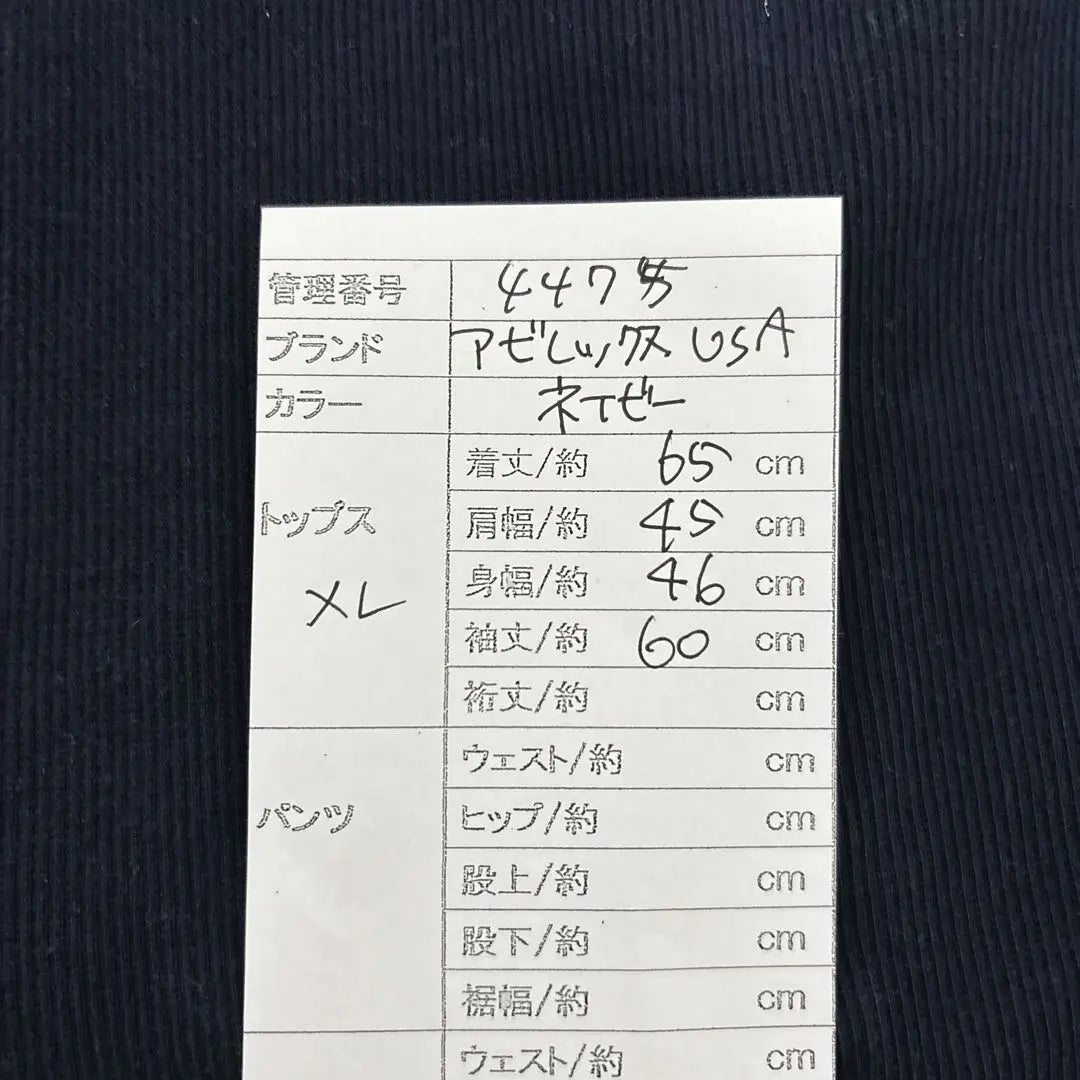 管理番号 447
ブランド アビレックス USA
カラー ネイビー
トップス XL
着丈/約 65 cm
肩幅/約 45 cm
身幅/約 46 cm
袖丈/約 60 cm
裄丈/約 cm
パンツ
ウェスト/約 cm
ヒップ/約 cm
股上/約 cm
股下/約 cm
裾幅/約 cm
ウェスト/約 cm